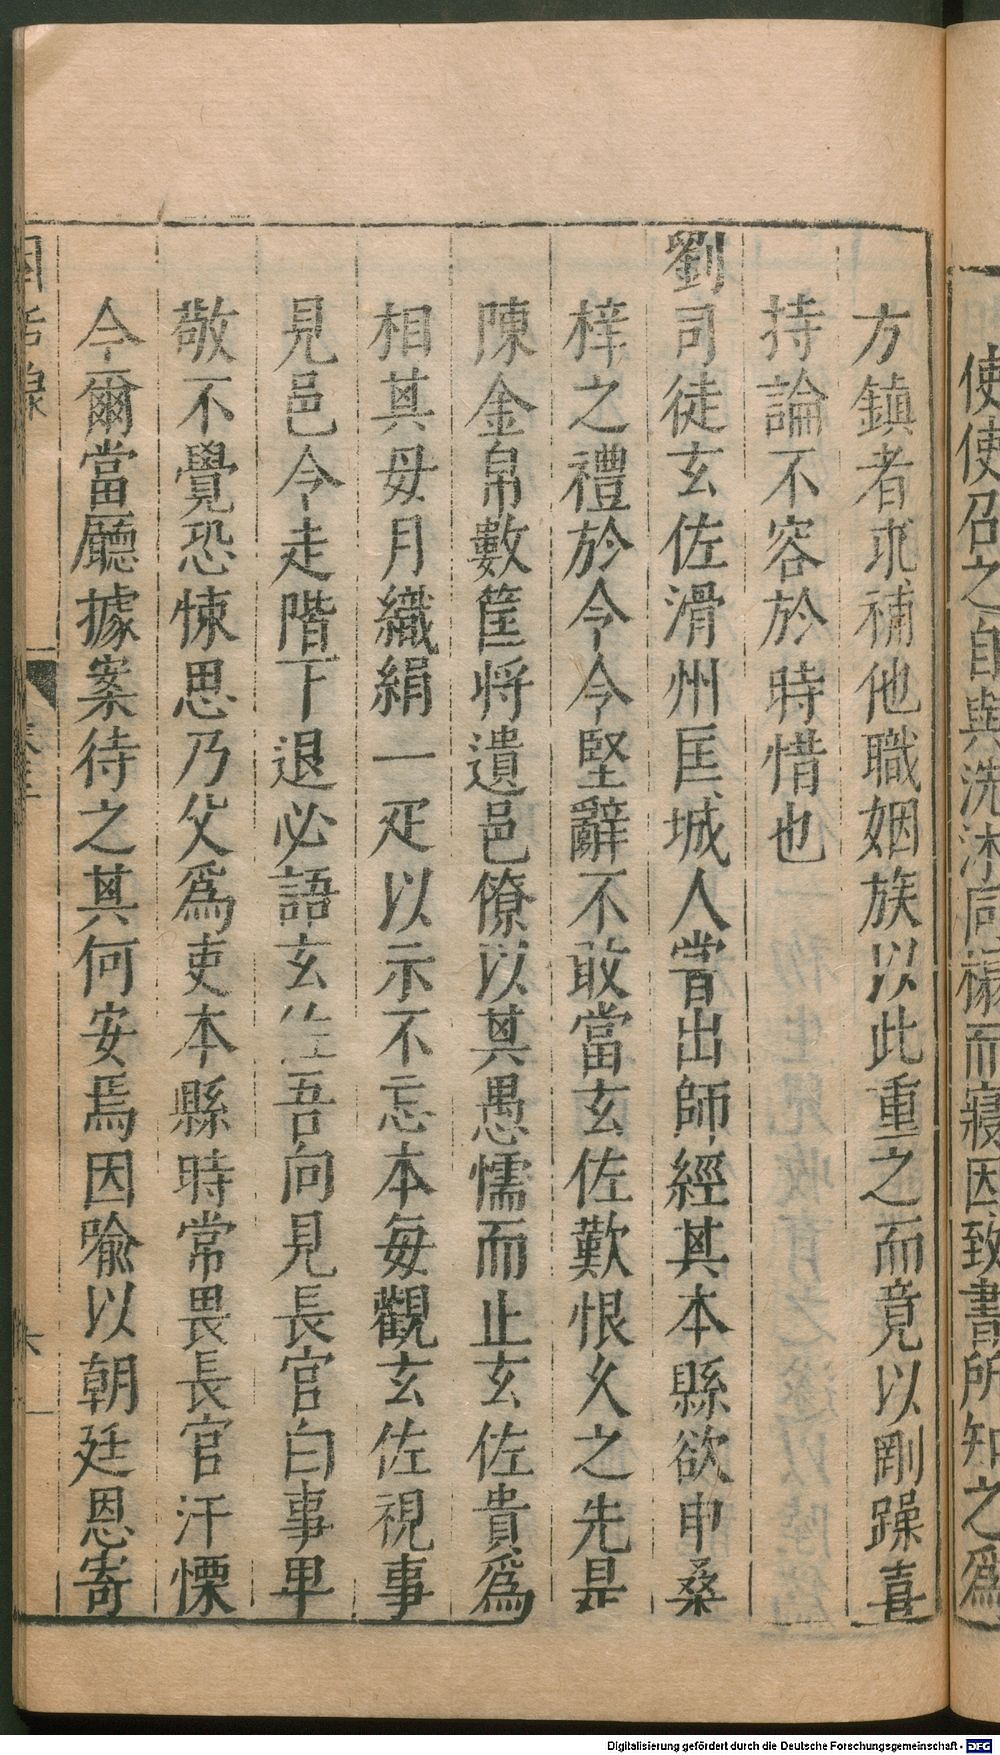 使使召之自與洗沐同寢而寢因致書所知之爲
方鎮者求補他職姻族以此重之而竟以剛躁喜
持論不容於時惜也
劉司徒玄佐滑州匡城人嘗出師經其本縣欲申桑
梓之禮於令令堅辭不敢當玄佐歎恨久之先是
陳金帛數筐將遺邑僚以其愚懦而止玄佐貴爲
相其母月織絹一疋以示不忘本每觀玄佐視事
見邑令走階下退必語玄佐吾向見長官白事卑
敬不覺恐悚思乃父爲吏本縣時常畏長官汗慄
今爾當廳據案待之其何安焉因喻以朝廷恩寄
因話錄
卷三
六
Digitalisierung gefördert durch die Deutsche Forschungsgemeinschaft - DFG